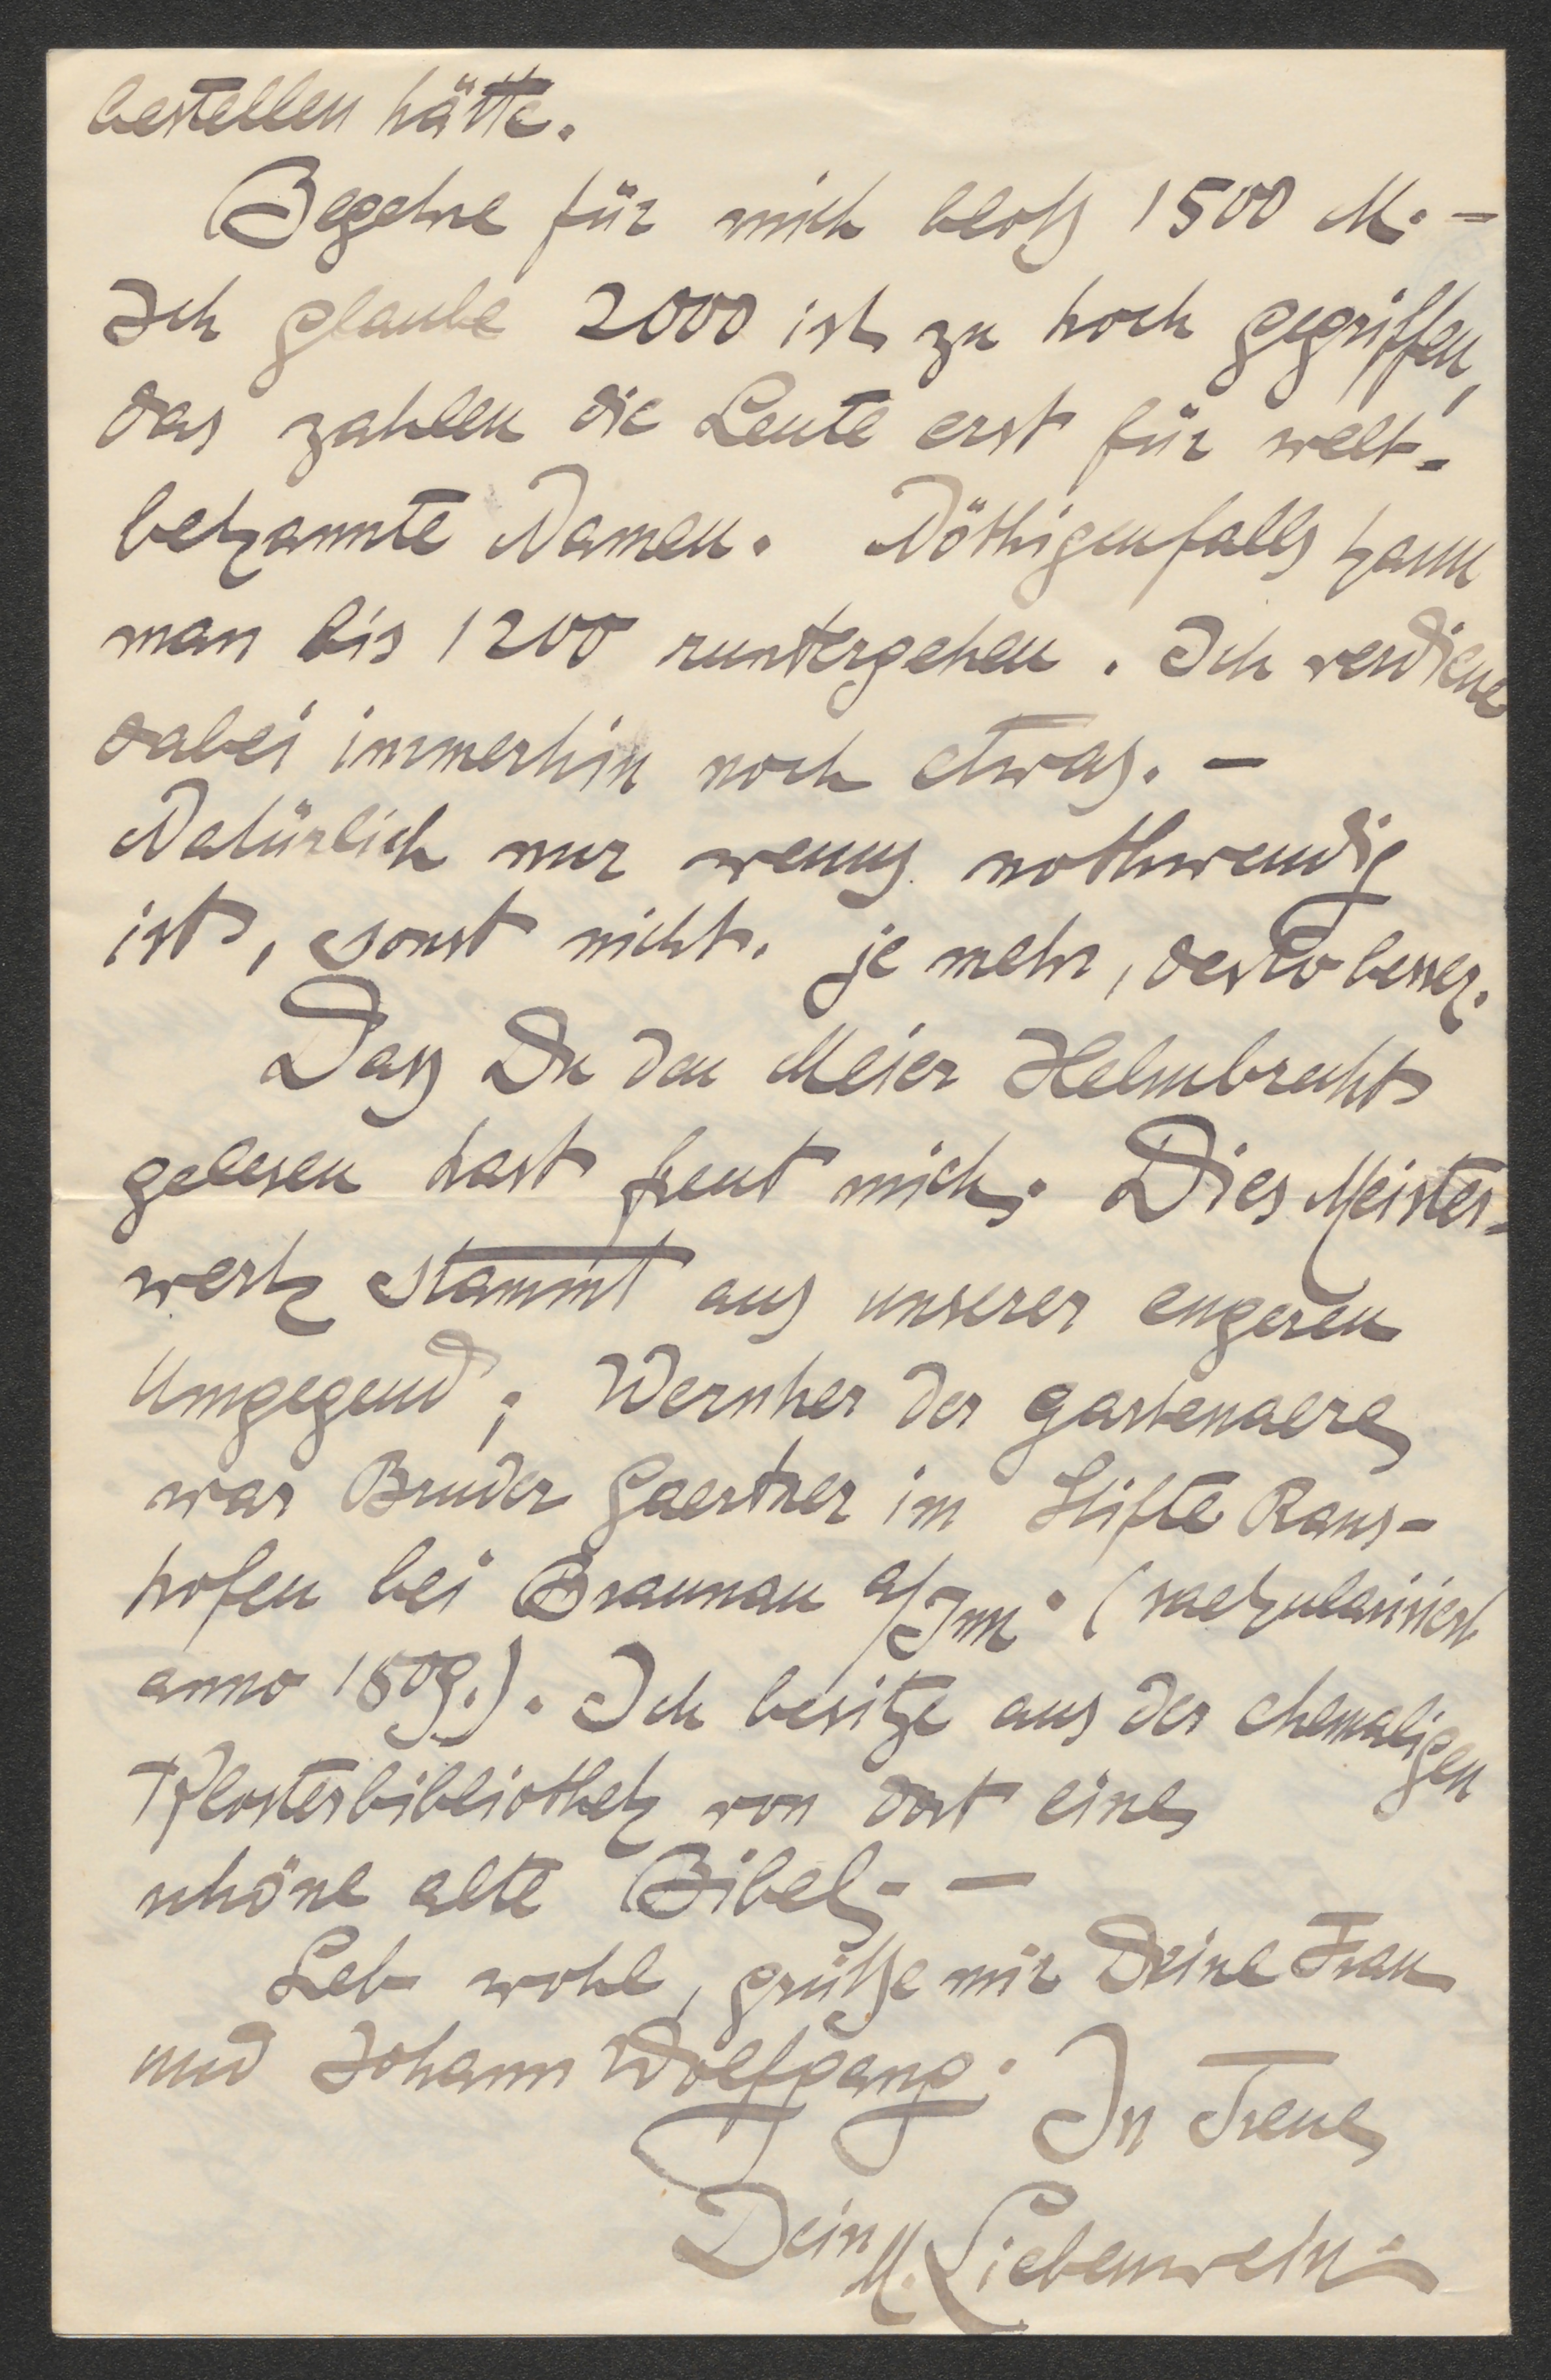 bestellen hätte.
Begehre für mich bloß 1500 M. –
Ich glaube 2000 ist zu hoch gegriffen,
das zahlen die Leute erst für welt-
bekannte Namen. Nöthigenfalls kann
man bis 1200 runtergehen. Ich verdiene
dabei immerhin noch etwas. –
Natürlich nur wenns nothwendig
ist, sonst nicht. je mehr, desto besser.
Dass Du den Meier Helmbrecht
gelesen hast freut mich. Dies Meister-
werk stammt aus unserer engeren
Umgegend; Wernher der gartenaere
war Bruder Gaertner im Stifte Rans-
hofen bei Braunau a/Inn. (saekularisiert
anno 1809.). Ich besitze aus der ehemaligen
Klosterbibliothek von dort eine
schöne alte Bibel. –
Leb wohl, grüße mir Deine Frau
und Johann Wolfgang. In Treue
Dein M. Liebenwein.